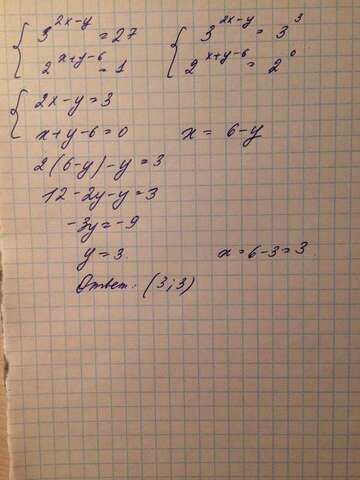 { 3^{2x-y} = 27 { 3^{2x-y} = 3^3
2^{x+y-6} = 1 2^{x+y-6} = 2^0
{ 2x-y=3
x+y-6=0 x = 6-y
2(6-y)-y=3
12-2y-y=3
-3y=-9
y=3. x=6-3=3
Ответ: (3;3)